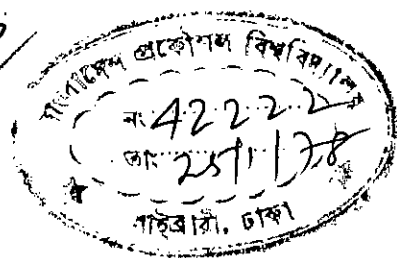 বাংলাদেশ প্রকৌশল বিশ্ববিদ্যালয়
নং 42222
তাং 25/1/78
লাইব্রারী, ঢাকা